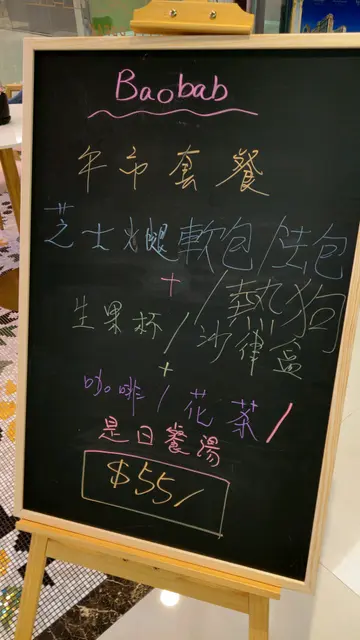 Baobab
午市套餐
芝士火腿軟包/法包
+ /熱狗
生果杯/沙律盒
+
咖啡/花茶/
是日餐湯
$55/